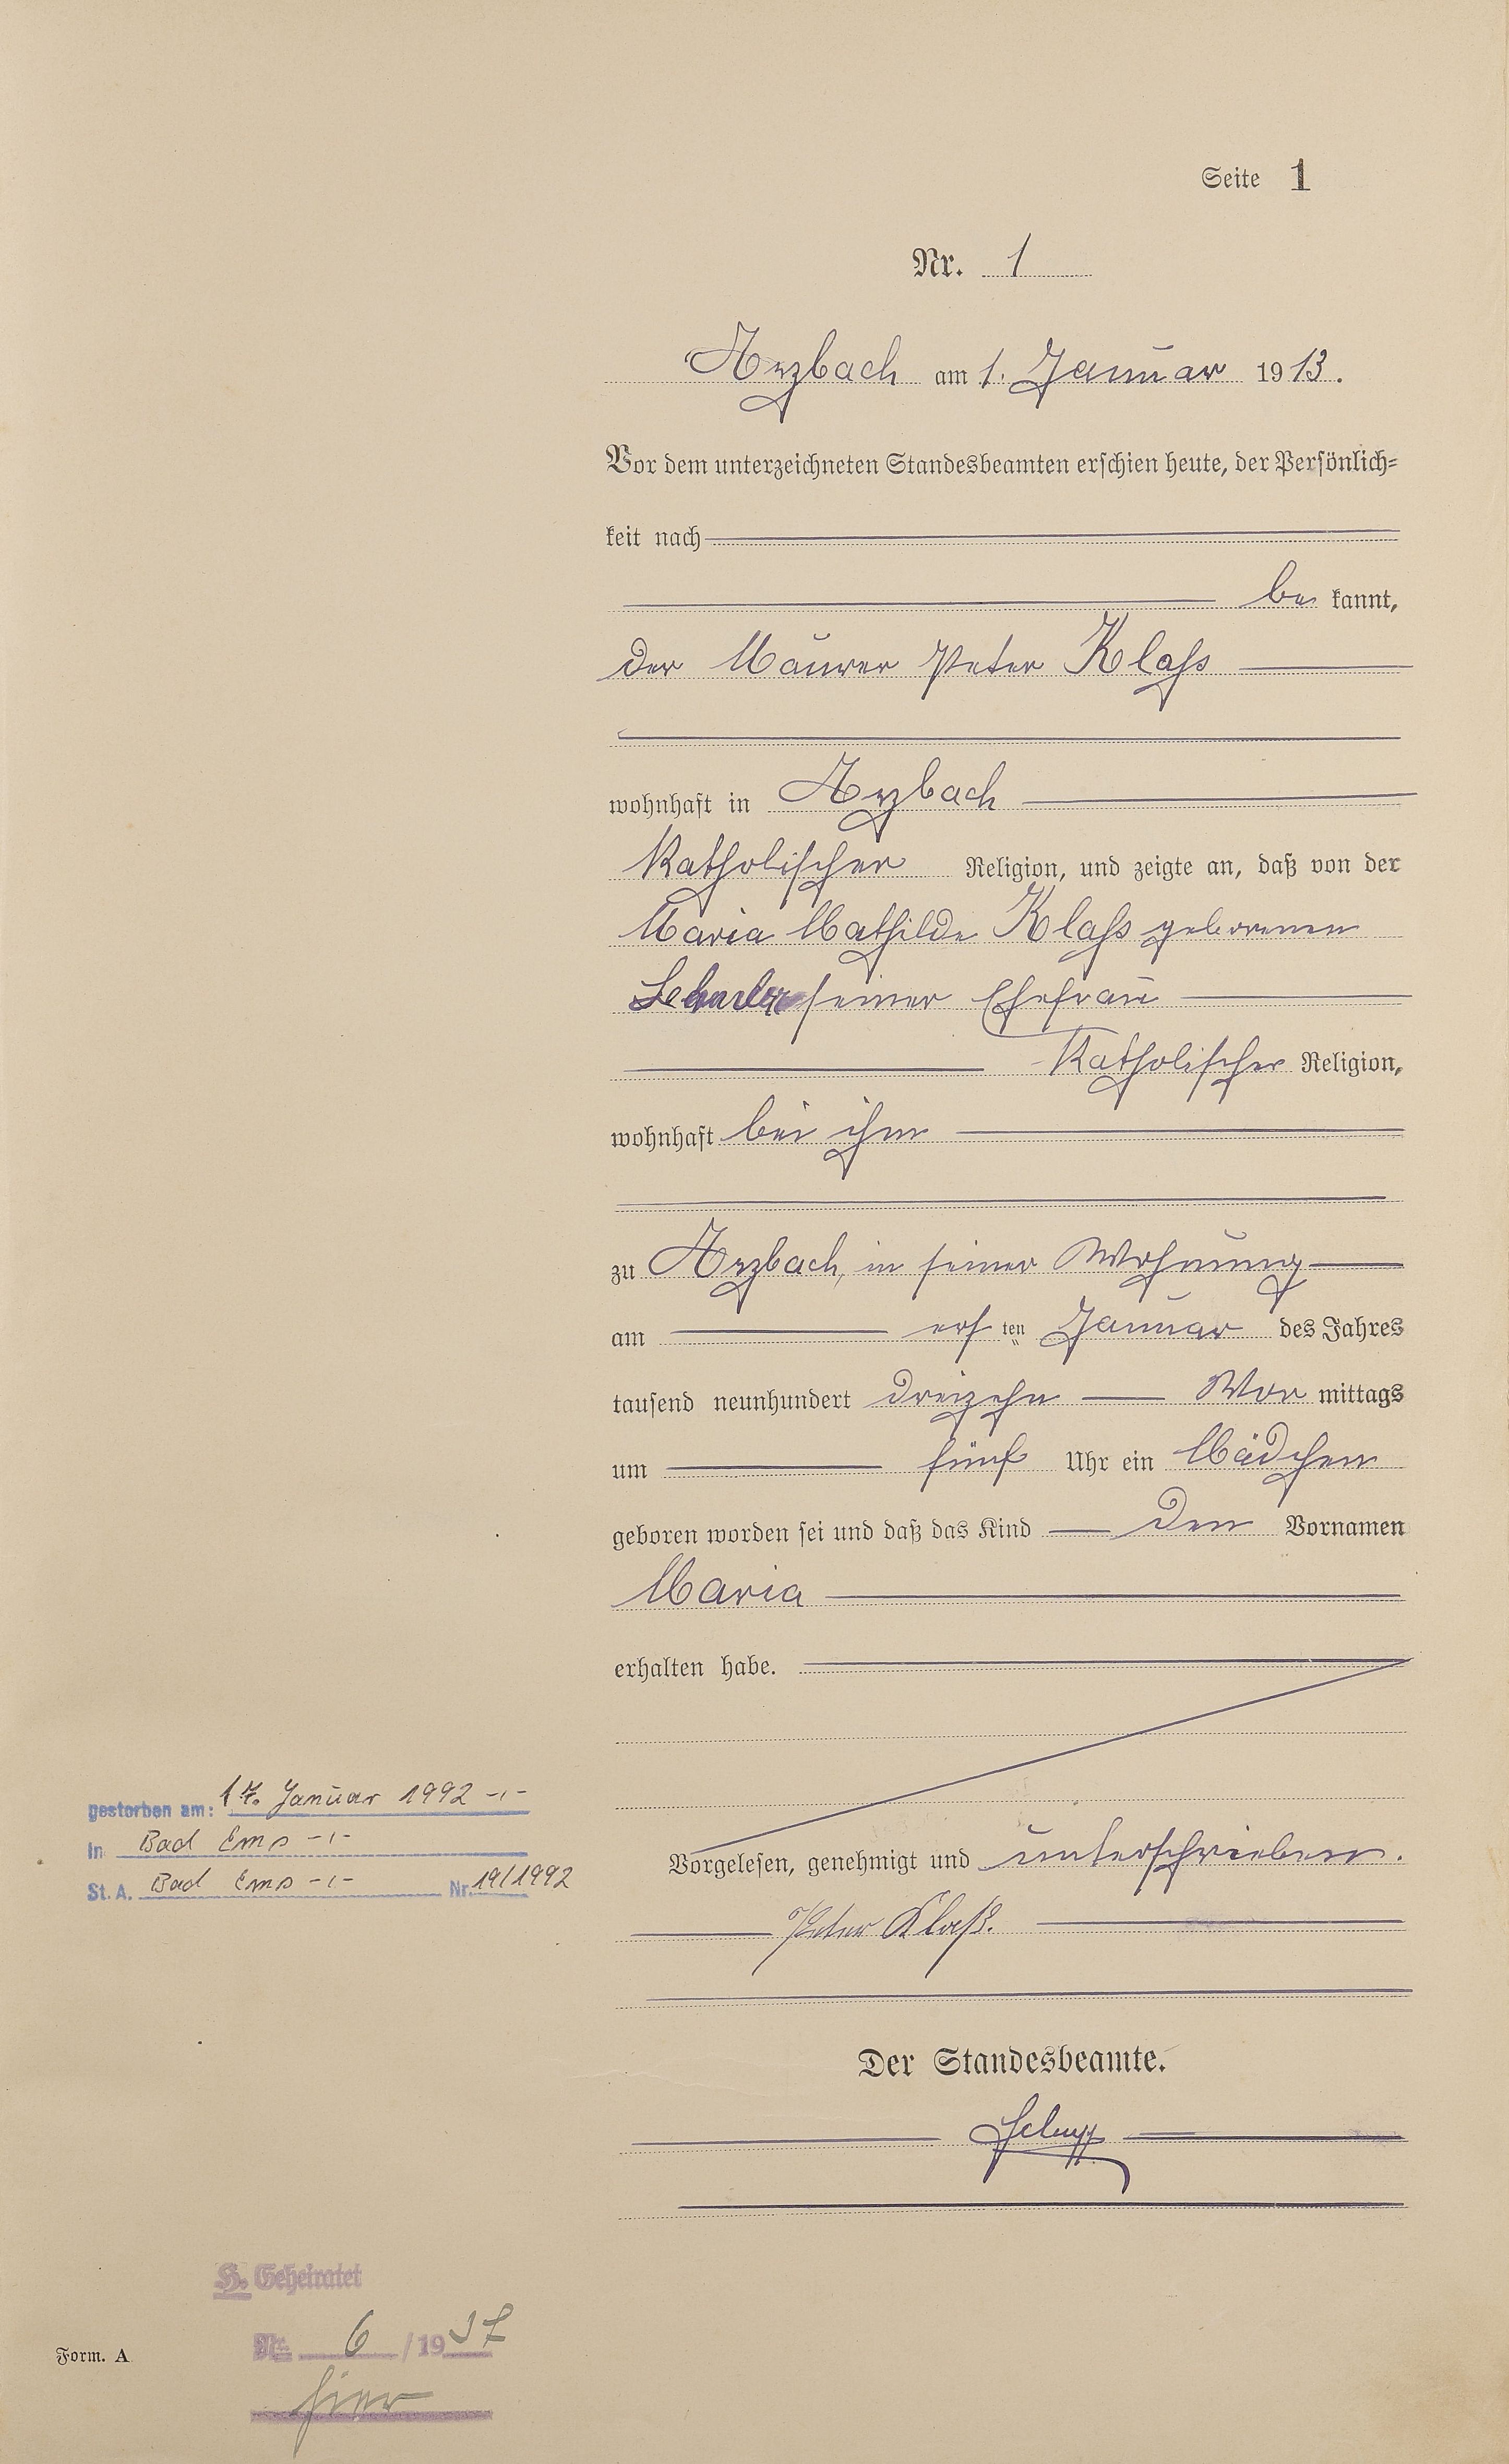 Seite 1
Nr. 1
Arzbach am 1. Januar 1913.
Vor dem unterzeichneten Standesbeamten erschien heute, der Persönlich=
keit nach
be kannt,
der Maurer Peter Klaß
wohnhaft in Arzbach
Katholischer Religion, und zeigte an, daß von der
Maria Mathilde Klaß geborenen
seiner Ehefrau
Katholischer Religion,
wohnhaft bei ihm
zu Arzbach, in seiner Wohnung
am ersten Januar des Jahres
tausend neunhundert dreizehn Vor mittags
um fünf Uhr ein Mädchen
geboren worden sei und daß das Kind den Vornamen
Maria
erhalten habe.
gestorben am: 17. Januar 1992 -,-
in Bad Ems -,-
St. A. Bad Ems -,- Nr. 19/1992
Vorgelesen, genehmigt und unterschrieben.
Peter Klaß.
Der Standesbeamte.
H. Geheiratet
Nr. 6 /1937
hier
Form. A